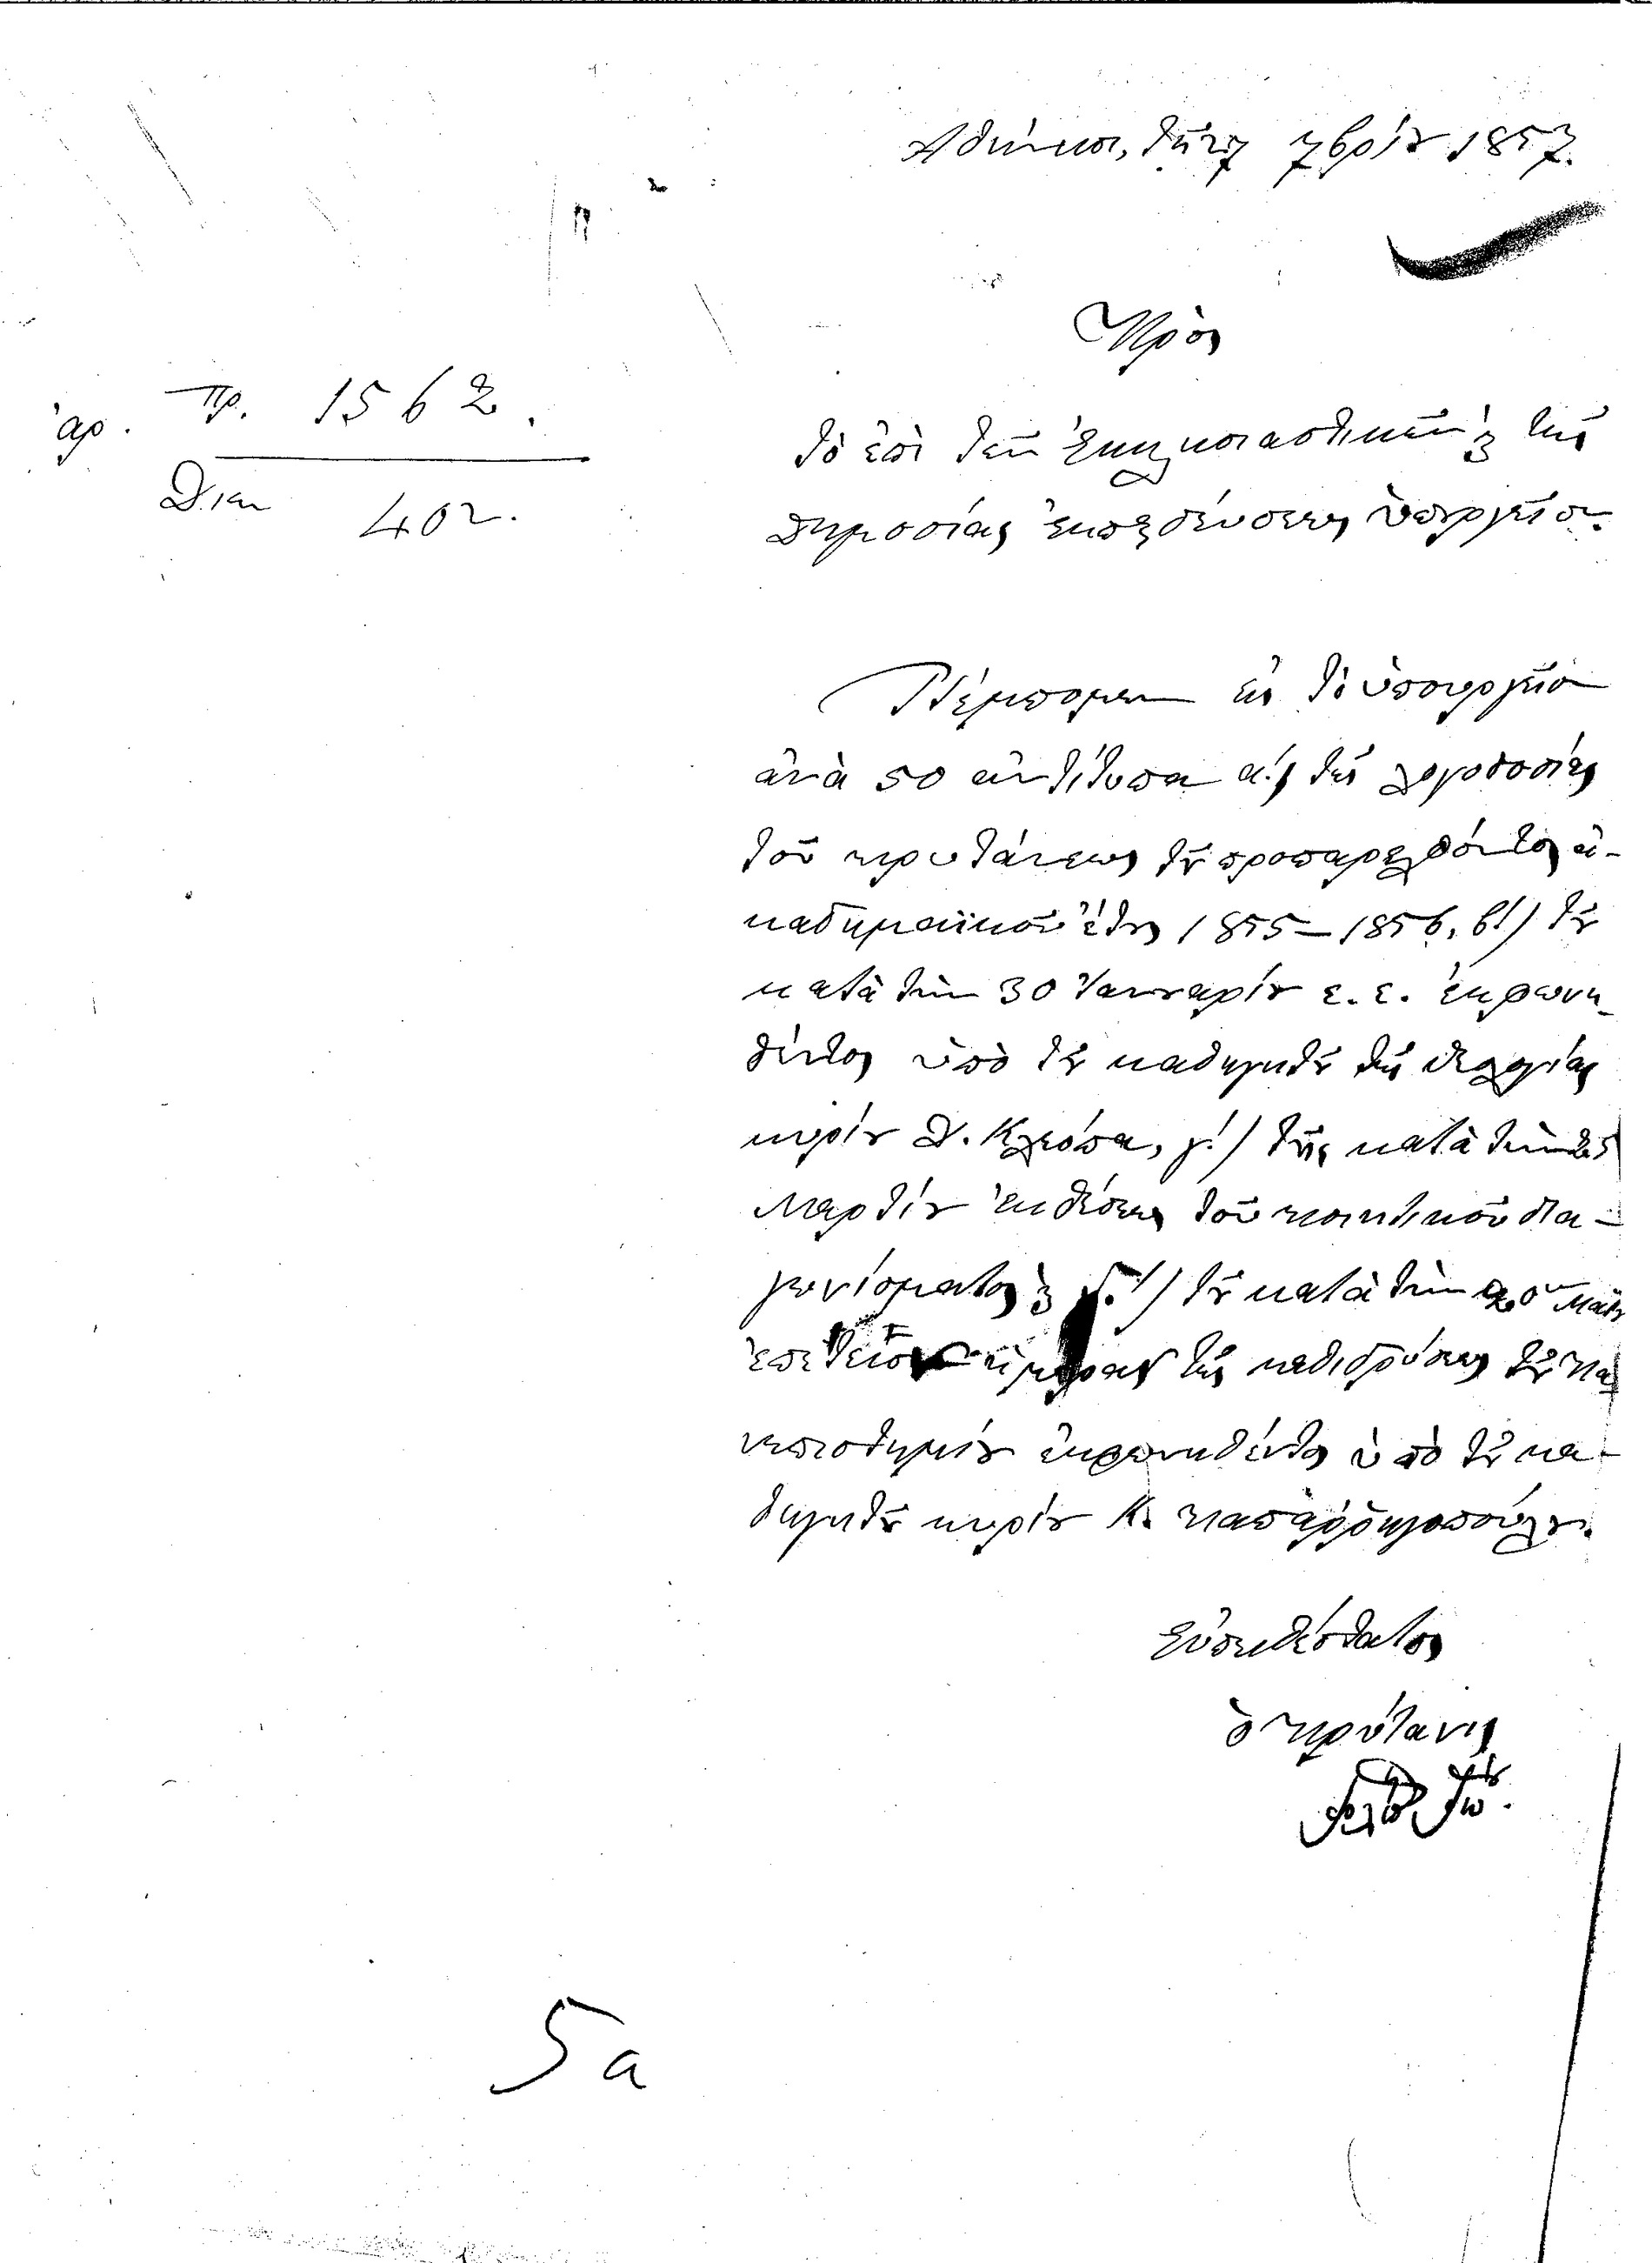 Ἀθήνησι, τῇ 27 7βρίου 1857.
ἀρ. Πρ. 1562.
Διεκ 402.
Πρὸς
τὸ ἐπὶ τῶν Ἐκκλησιαστικῶν καὶ τῆς
Δημοσίας Ἐκπαιδεύσεως Ὑπουργεῖον.
Πέμπομεν εἰς τὸ ὑπουργεῖον
ἀνὰ 50 ἀντίτυπα α΄.) τῆς λογοδοσίας
τοῦ πρυτάνεως τοῦ προπαρελθόντος ἀ-
καδημαϊκοῦ ἔτους 1855–1856, β΄) τοῦ
κατὰ τὴν 30 Ἰανουαρίου ε. ἔ. ἐκφωνη-
θέντος ὑπὸ τοῦ καθηγητοῦ τῆς θεολογίας
κυρίου Δ. Κλεόπα, γ΄.) τῆς κατὰ τὴν 25
Μαρτίου ἐκθέσεως τοῦ ποιητικοῦ δια-
γωνίσματος καὶ δ΄.) τοῦ κατὰ τὴν 20 Μαΐου
ἐπέτειον ἡμέραν τῆς καθιδρύσεως τοῦ Πα-
νεπιστημίου ἐκφωνηθέντος ὑπὸ τοῦ κα-
θηγητοῦ κυρίου Κ. Παπαῤῥηγοπούλου.
Εὐπειθέστατος
ὁ πρύτανις
5a